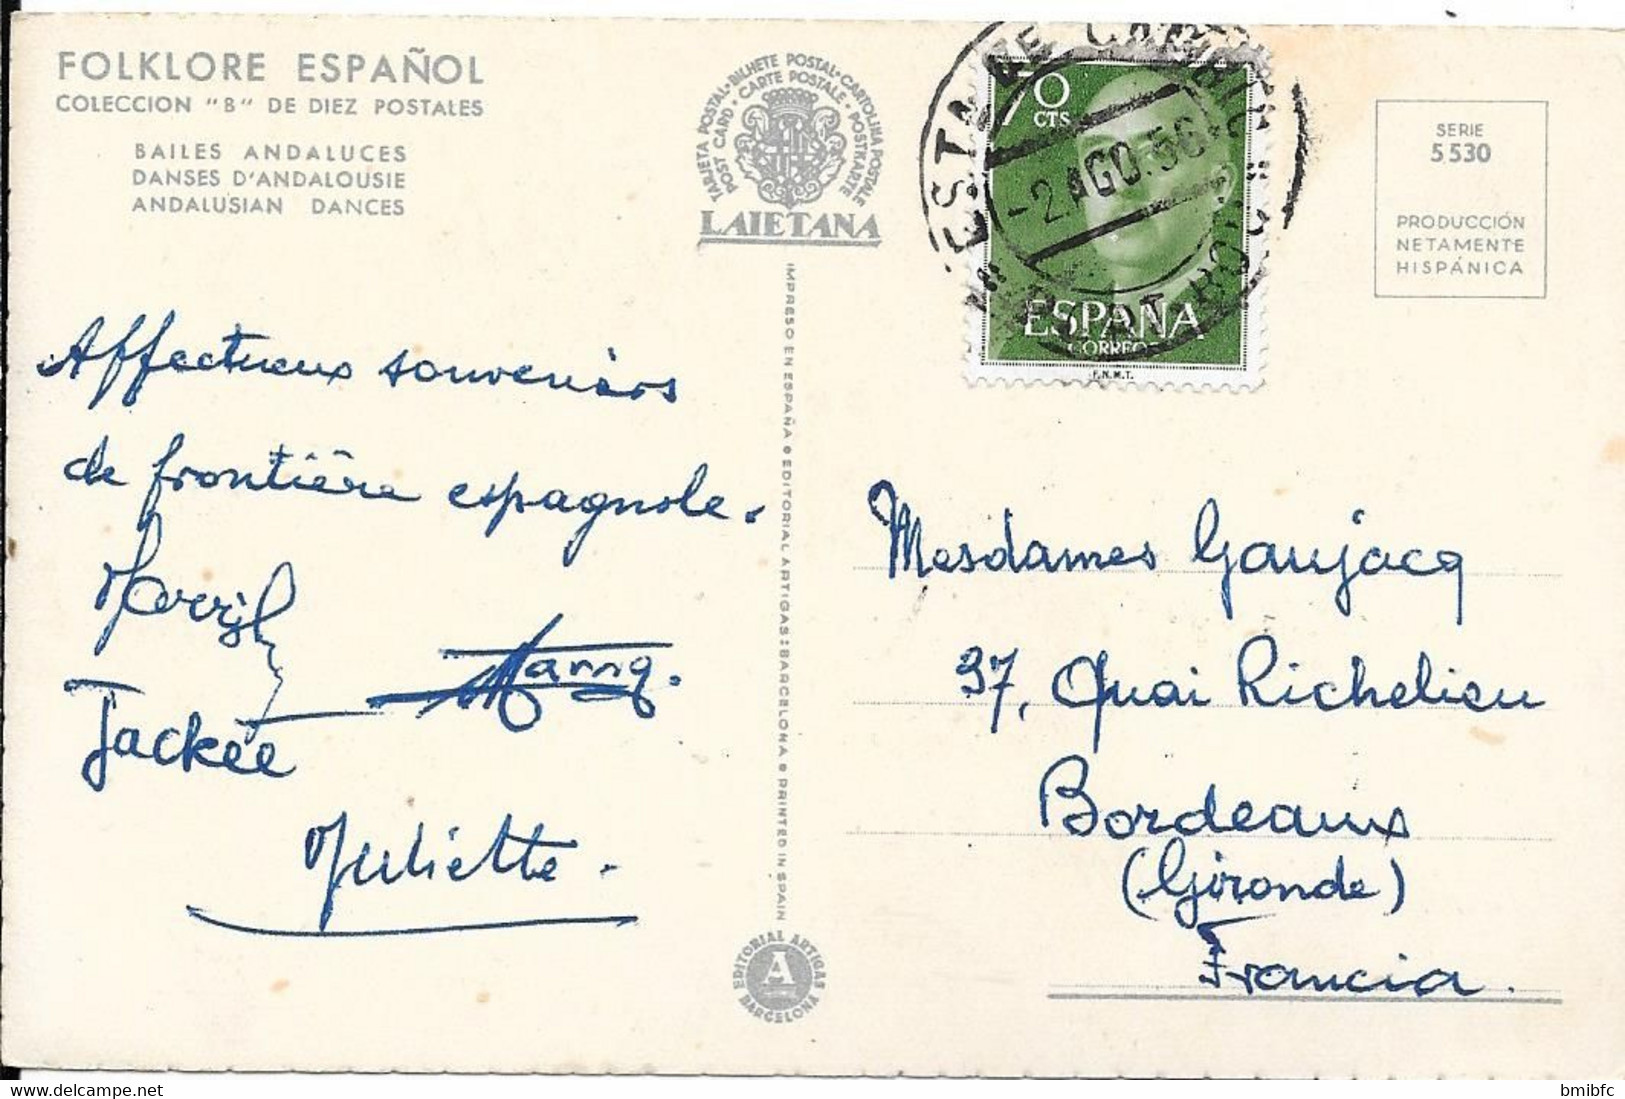 FOLKLORE ESPAÑOL
COLECCION "B" DE DIEZ POSTALES
BAILES ANDALUCES
DANSES D'ANDALOUSIE
ANDALUSIAN DANCES
TARJETA POSTAL · BILHETE POSTAL · CARTOLINA POSTALE
POST CARD · CARTE POSTALE · POSTKARTE
LAIETANA
70
CTS
-2.AGO.56
ESPAÑA
CORREOS
F.N.M.T.
SERIE
5530
PRODUCCIÓN
NETAMENTE
HISPÁNICA
IMPRESO EN ESPAÑA • EDITORIAL ARTIGAS: BARCELONA • PRINTED IN SPAIN
Affectueux souvenirs
de frontière espagnole.
Jackée
Juliette.
Mesdames Gaujacq
37, Quai Richelieu
Bordeaux
(Gironde)
Francia.
EDITORIAL ARTIGAS
A
BARCELONA
bmibfc